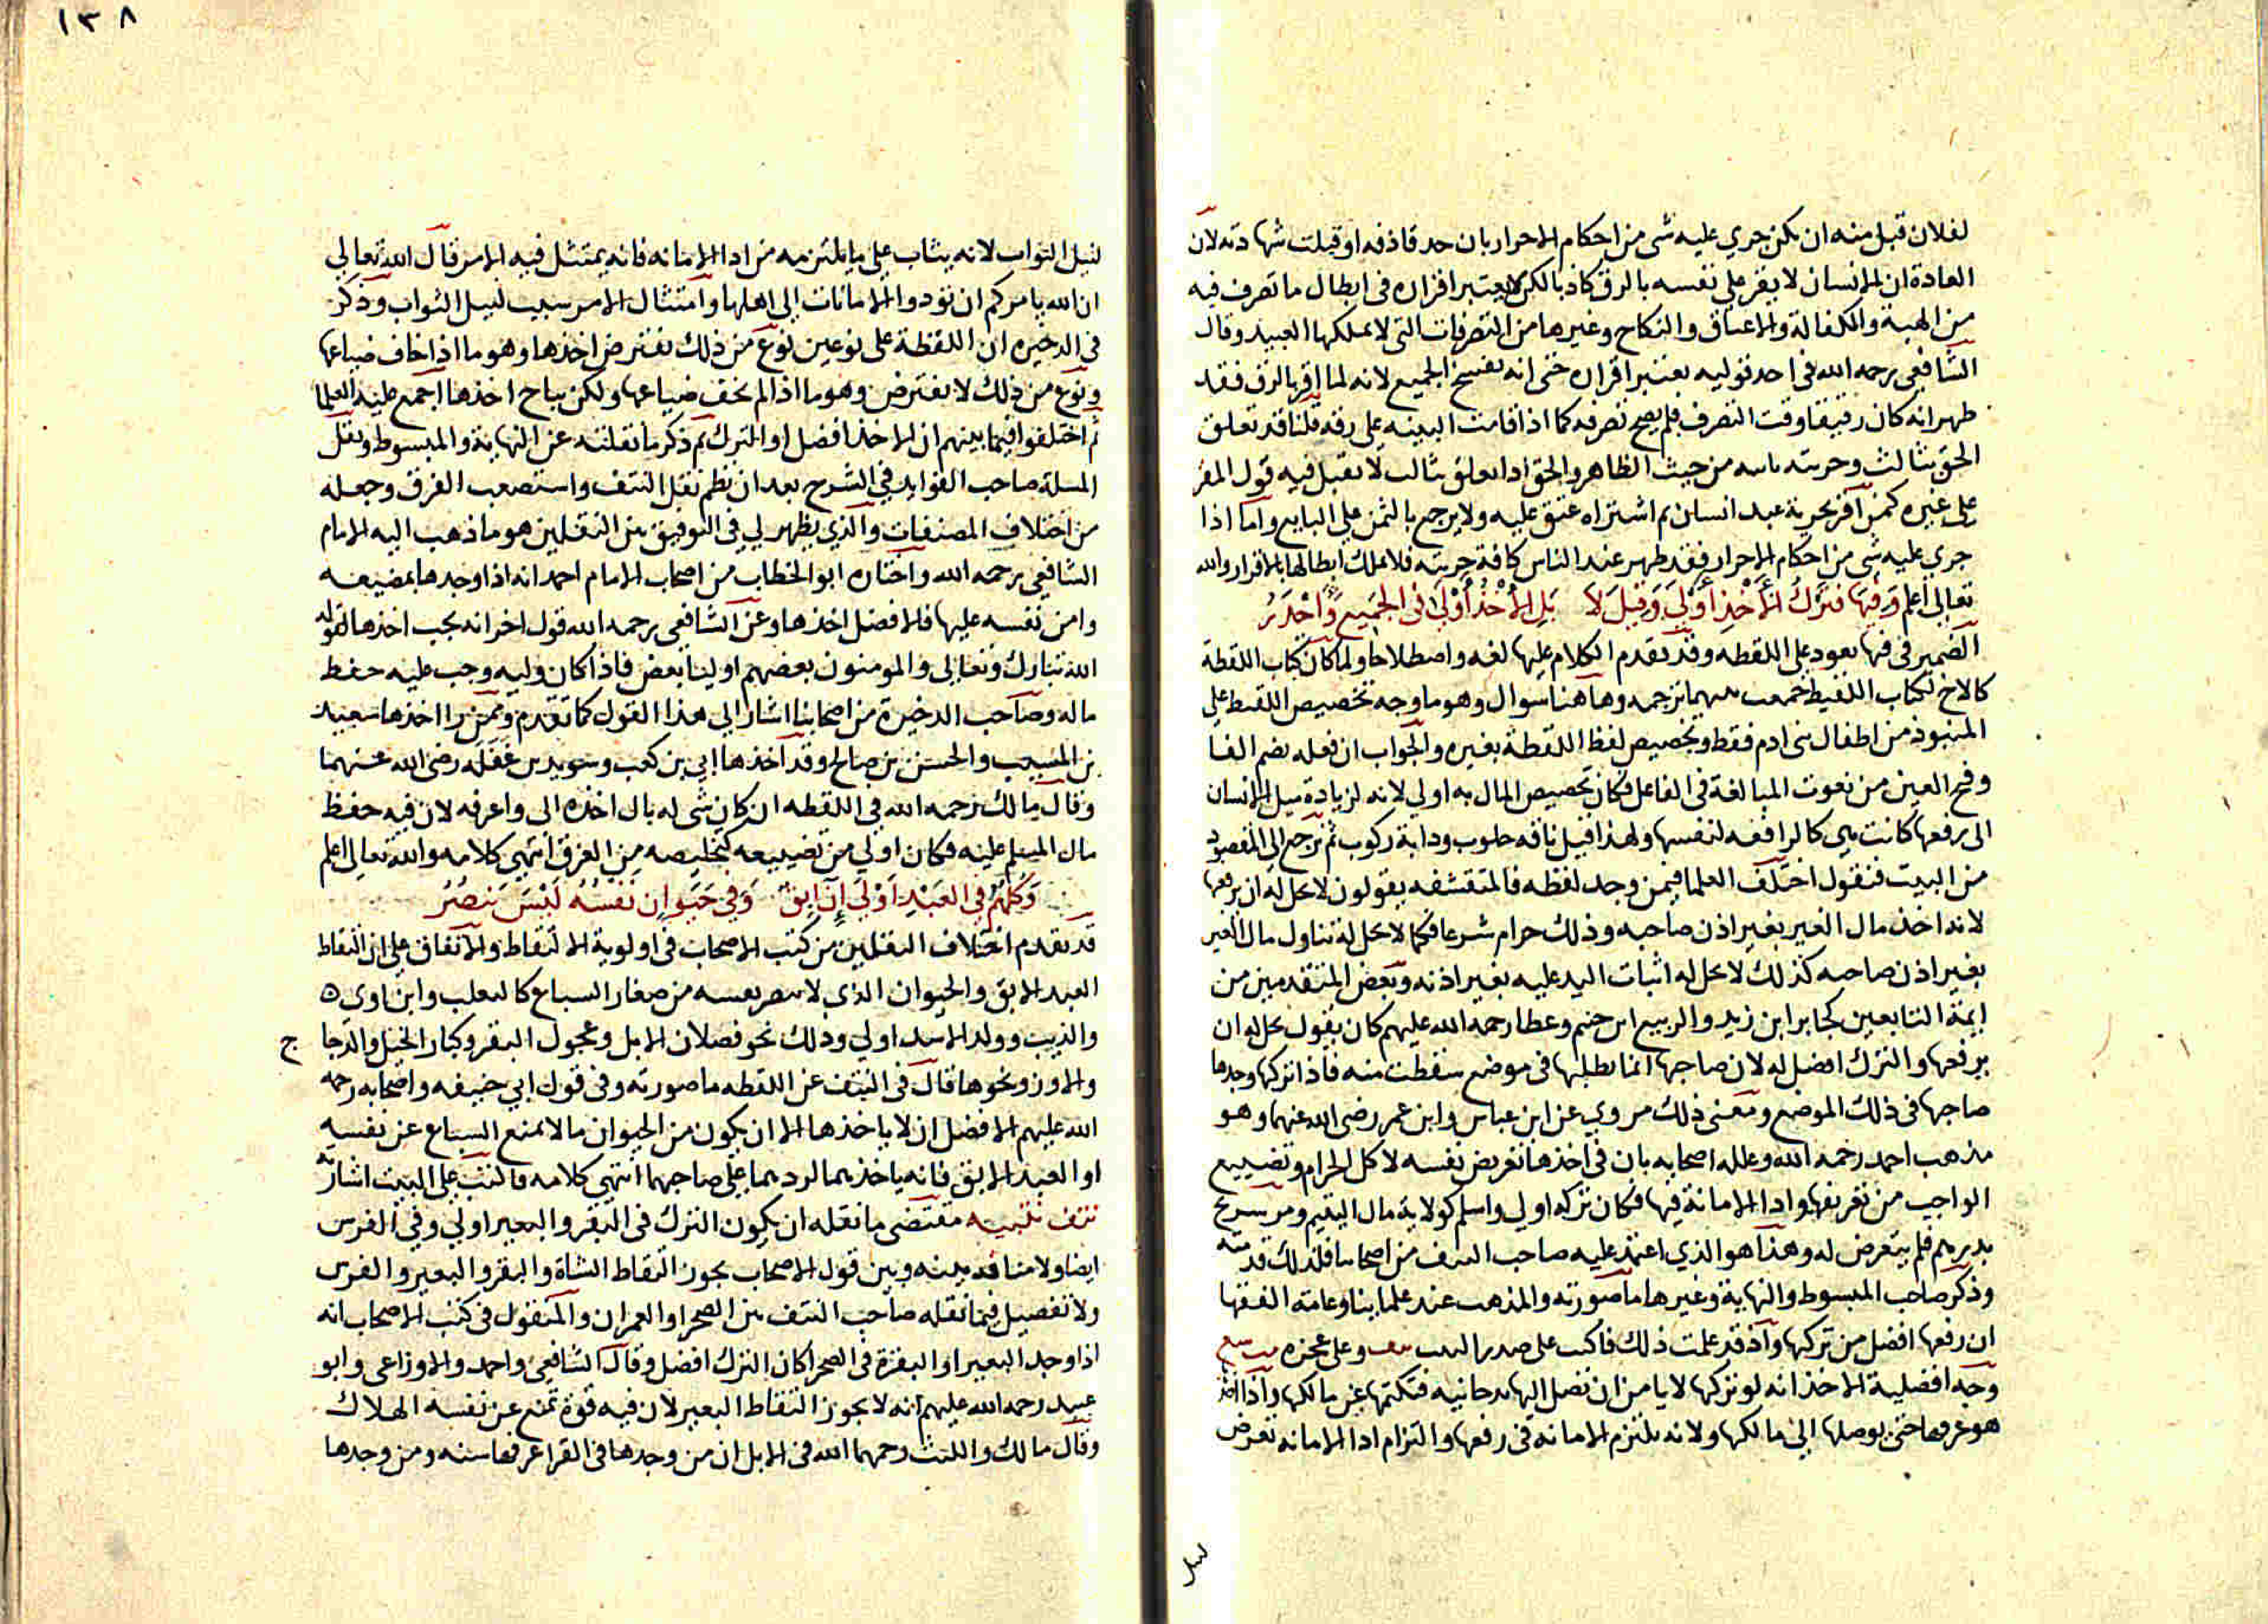 لفلان قبل منه ان لم يكن جري عليه شى من احكام الاحرار بان حد قاذفه او قبلت شهادته لان
العادة ان الانسان لا يقر على نفسه بالرق كاذبا لكن لا يعتبر اقراره فى ابطال ما تصرف فيه
من الهبة والكفالة والاعتاق والنكاح وغيرها من التصرفات التى لا يملكها العبيد وقال
الشافعى رحمه الله فى احد قوليه يعتبر اقراره حتى انه يفسخ الجميع لانه لما اقر بالرق فقد
ظهر انه كان رقيقا وقت التصرف فلم يصح تصرفه كما اذا قامت البينه على رقه قلنا قد تعلق
الحق بثالث وحريته ثابته من حيث الظاهر والحق اذا تعلق بثالث لا يقبل فيه قول المقر
على غيره كمن اقر بحرية عبد انسان ثم اشتراه عتق عليه ولا يرجع بالثمن على البايع واما اذا
جري عليه شى من احكام الاحرار فقد ظهر عند الناس كافة حريته فلا يملك ابطالها بالاقرار والله
تعالى اعلم وفيها فترك الاخذ اولى وقيل لا بل الاخذ اولى فى الجميع واجدر
الضمير فى فيها يعود على اللقطه وقد تقدم الكلام عليها لغه واصطلاحا ولما كان كتاب اللقطة
كالاخ لكتاب اللقيط جمعت بينهما ترجمه وهاهنا سوال وهو ما وجه تخصيص اللقيط على
المنبوذ من اطفال بنى ادم فقط وتخصيص لفظ اللقطة بغيره والجواب ان فعله بضم الفا
وفتح العين من نعوت المبالغة فى الفاعل فكان تخصيص المال به اولى لانه لزيادة ميل الانسان
الى رفعها كانت هى كالرافعه لنفسها ولهذا قيل ناقه حلوب ودابة ركوب ثم نرجع الى المقصود
من البيت فنقول اختلف العلما فيمن وجد لقطه فالمتقشفه يقولون لا يحل له ان يرفعها
لانه اخذ مال الغير بغير اذن صاحبه وذلك حرام شرعا فكما لا يحل له تناول مال الغير
بغير اذن صاحبه كذلك لا يحل له اثبات اليد عليه بغير اذنه وبعض المتقدمين من
ايمة التابعين كجابر ابن زيد والربيع ابن خثيم وعطا رحمة الله عليهم كان يقول يحل له ان
يرفعها والترك افضل له لان صاحبها انما يطلبها فى موضع سقطت منه فاذا تركها وجدها
صاحبها فى ذلك الموضع ومعنى ذلك مروي عن ابن عباس وابن عمر رضى الله عنهما وهو
مذهب احمد رحمه الله وعلله اصحابه بان فى اخذها تعريض نفسه لاكل الحرام وتضييع
الواجب من تعريفها وادا الامانة فيها فكان تركه اولى واسلم كولاية مال اليتيم ومر سريج
بدرهم فلم يتعرض له وهذا هو الذي اعتمد عليه صاحب النتف من اصحابنا فلذلك قدمته
وذكر صاحب المبسوط والنهاية وغيرها ما صورته والمذهب عند علماينا وعامة الفقها
ان رفعها افضل من تركها واذ قد علمت ذلك فاكتب على صدر البيت وعلى عجزه
وجه افضلية الاخذ انه لو تركها لا يامن ان تصل اليها يد جانيه فتكتمها عن مالكها واذا اخذ
هو عرفها حتى يوصلها الى مالكها ولانه يلتزم الامانة فى رفعها والتزام ادا الامانه تعرض
لنيل
١٣٨
لنيل الثواب لانه يثاب على ما يلتزمه من ادا الامانه فانه يمتثل فيه الامر قال الله تعالى
ان الله يامركم ان تودوا الامانات الى اهلها وامتثال الامر سبب لنيل الثواب وذكر
فى الدخيره ان اللقطة على نوعين نوع من ذلك يفترض اخذها وهو ما اذا خاف ضياعها
ونوع من ذلك لا يفترض وهو ما اذا لم يخف ضياعها ولكن يباح اخذها اجمع عليه العلما
ثم اختلفوا فيما بينهم ان الاخذ افضل او الترك ثم ذكر ما نقلته عن النهاية والمبسوط ونقل
المسلة صاحب الفوايد فى الشرح بعد ان نظم نقل النتف واستصعب الفرق وجعله
من اختلاف المصنفات والذي يظهر لي فى التوفيق بين النقلين هو ما ذهب اليه الامام
الشافعى رحمه الله واختاره ابو الخطاب من اصحاب الامام احمد انه اذا وجدها بمضيعه
وامن نفسه عليها فالافضل اخذها وعن الشافعى رحمه الله قول اخر انه يجب اخذها لقوله
الله تبارك وتعالى والمومنون بعضهم اوليا بعض فاذا كان وليه وجب عليه حفظ
ماله وصاحب الدخيرة من اصحابنا اشار الى هذا القول كما تقدم وممن را اخذها سعيد
بن المسيب والحسن بن صالح وقد اخذها ابي بن كعب وسويد بن غفله رضى الله عنهما
وقال مالك رحمه الله فى اللقطه ان كان شى له بال اخذه الى واعرفه لان فيه حفظ
مال المسلم عليه فكان اولي من تضييعه كتخليصه من الغرق انتهى كلامه والله تعالى اعلم
وكلهم فى العبد اولى ان ابق وفى حيوان نفسه ليس ينصر
قد تقدم اختلاف النقلين من كتب الاصحاب فى اولوية الالتقاط والاتفاق على ان التقاط
العبد الابق والحيوان الذى لا ينصر نفسه من صغار السباع كالثعلب وابن اوى
والذيب وولد الاسد اولي وذلك نحو فصلان الابل وعجول البقر وكبار الخيل والدجا ج
والاوز ونحوها قال فى النتف عن اللقطه ما صورته وفى قول ابي حنيفه واصحابه رحمه
الله عليهم الافضل ان لا ياخذها الا ان يكون من الحيوان مالا يمنع السباع عن نفسه
او العبد الابق فانه ياخذهما لردهما على صاحبهما انتهى كلامه فاكتب على البيت اشارته
نتف تنبيه مقتضى ما نقله ان يكون الترك فى البقر والبعير اولي وفى الفرس
ايضا ولا منافاه بينه وبين قول الاصحاب يجوز التقاط الشاة والبقر والبعير والفرس
ولا تفصيل فيما نقله صاحب النتف بين الصحرا والعمران والمنقول فى كتب الاصحاب انه
اذا وجد البعير او البقرة فى الصحرا كان الترك افضل وقال الشافعى واحمد والاوزاعى وابو
عبيد رحمه الله عليهم انه لا يجوز التقاط البعير لان فيه قوة تمنع عن نفسه الهلاك
وقال مالك والليث رحمهما الله فى الابل ان من وجدها فى القرا عرفها سنه ومن وجدها